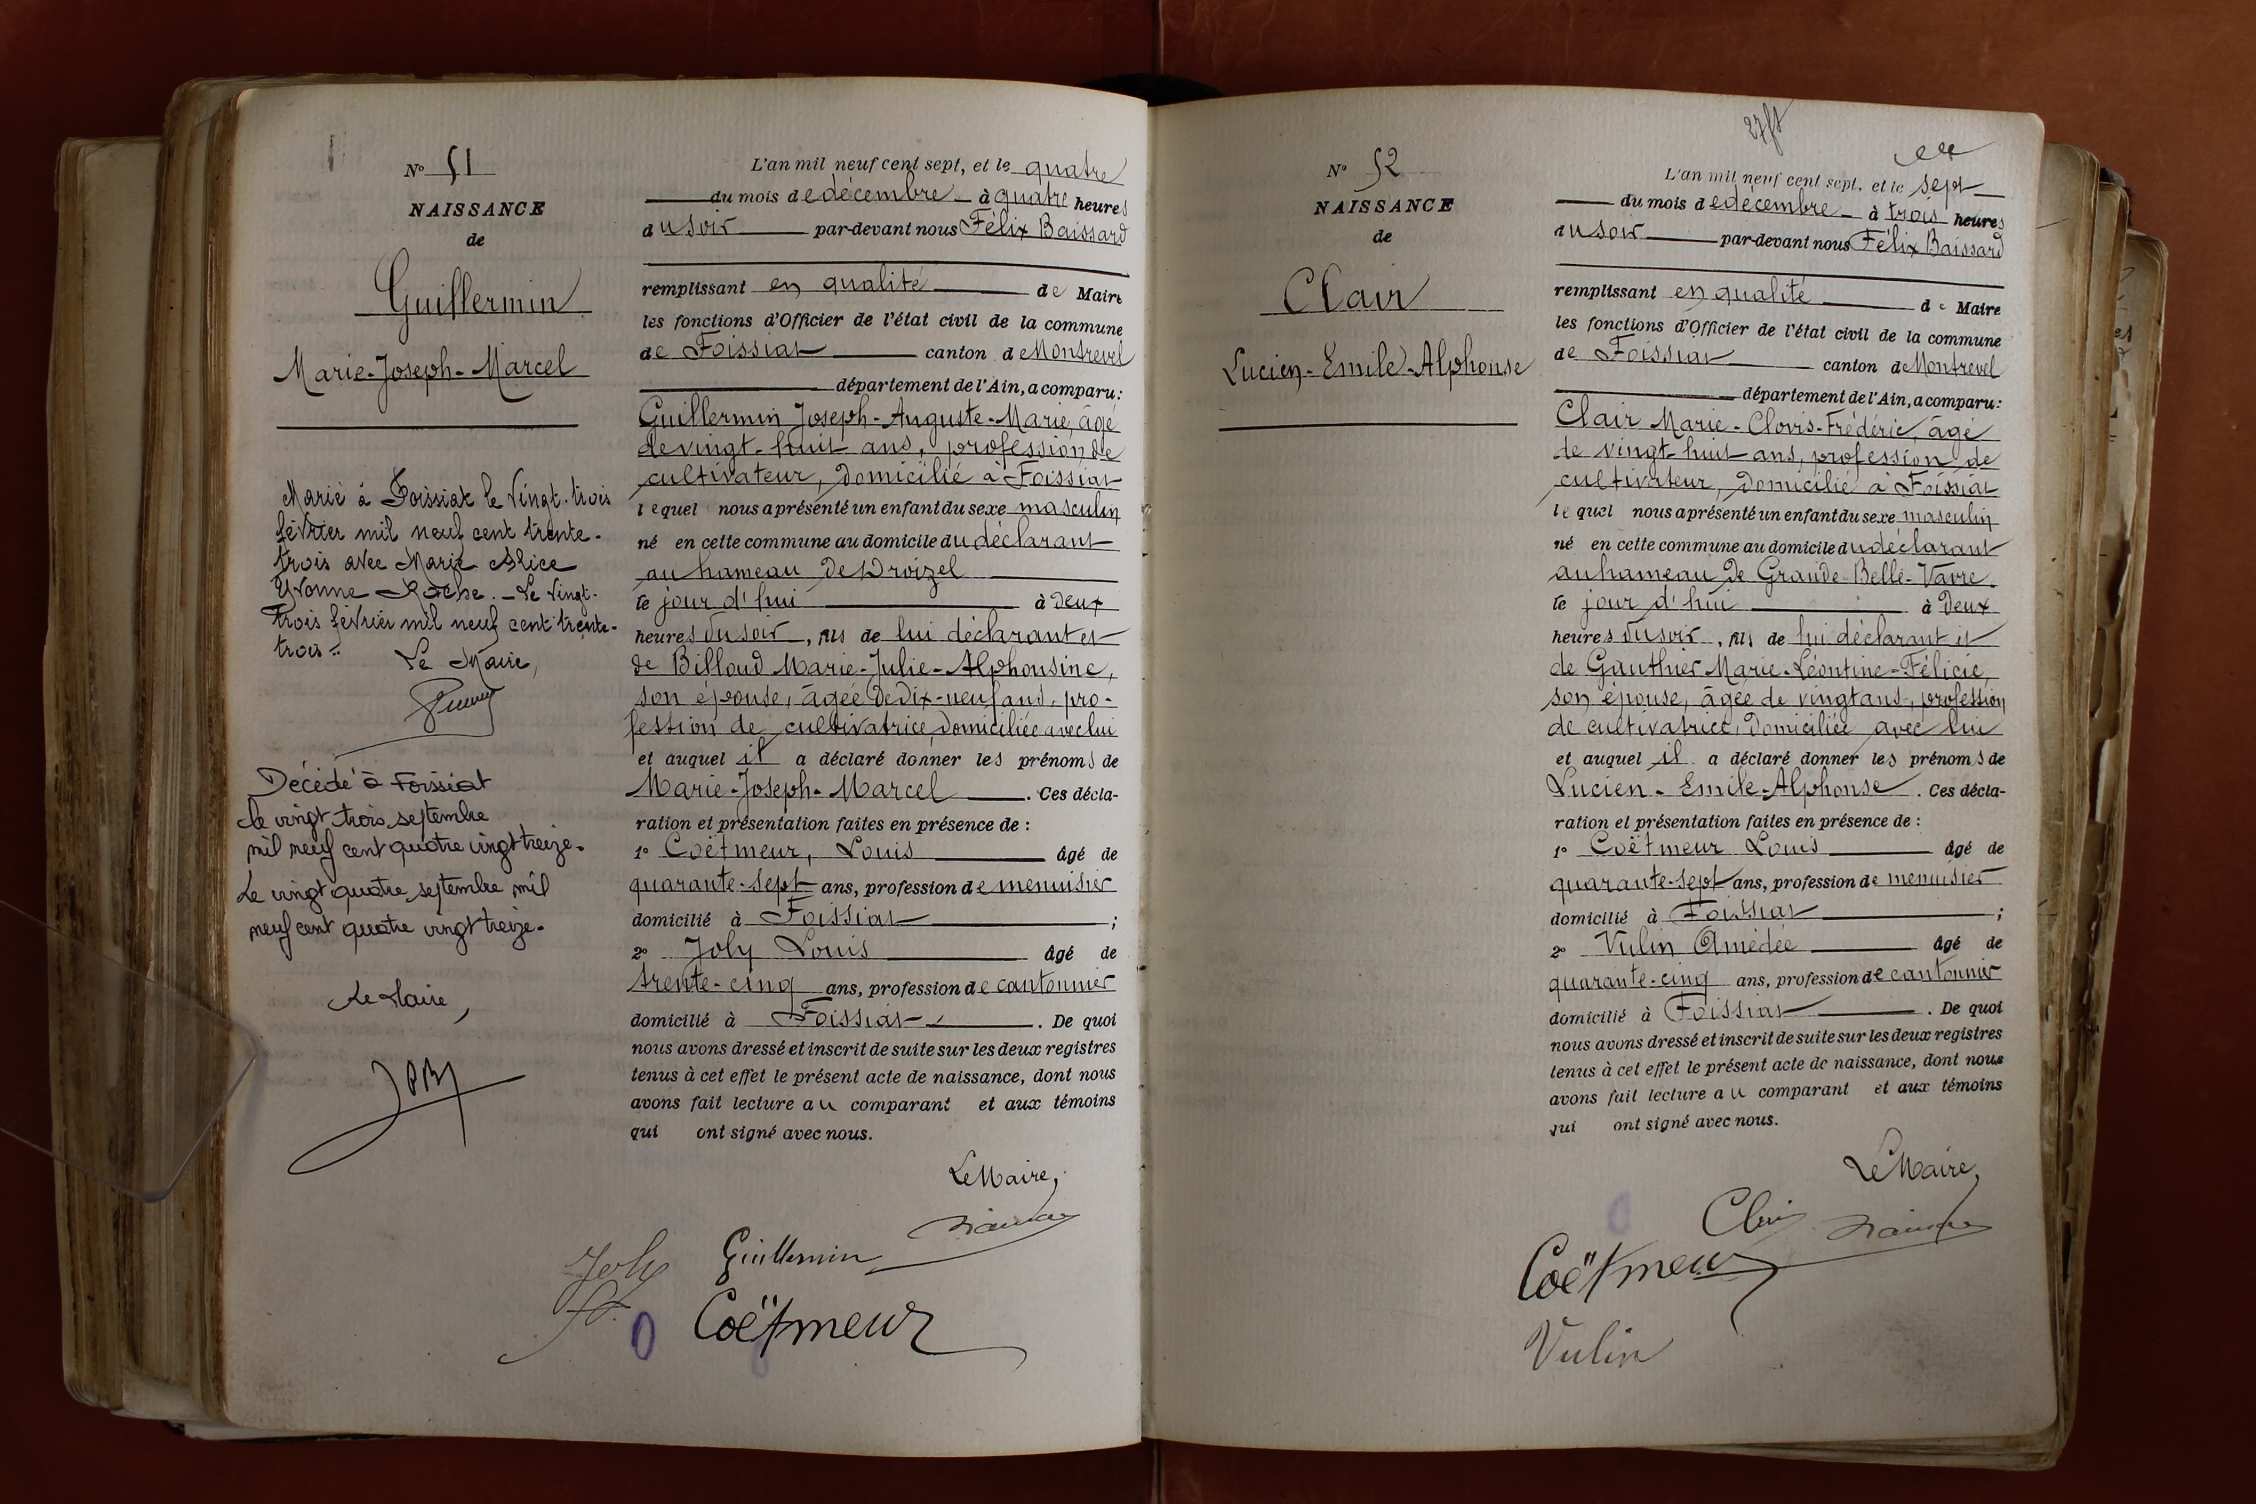 N° 51
NAISSANCE
de
Guillermin
Marie-Joseph-Marcel
Marié à Foissiat le vingt-trois
février mil neuf cent trente-
trois avec Marie Alice
Yvonne Roche. - Le vingt-
trois février mil neuf cent trente-
trois.
Le Maire,
Décédé à Foissiat
le vingt trois septembre
mil neuf cent quatre vingt treize.
Le vingt quatre septembre mil
neuf cent quatre vingt treize.
Le Maire,
L'an mil neuf cent sept, et le quatre
du mois de décembre à quatre heures
du soir par-devant nous Félix Baissard
remplissant en qualité de Maire
les fonctions d'Officier de l'état civil de la commune
de Foissiat canton de Montrevel
département de l'Ain, a comparu:
Guillermin Joseph-Auguste-Marie, âgé
de vingt-huit ans, profession de
cultivateur, domicilié à Foissiat
lequel nous a présenté un enfant du sexe masculin
né en cette commune au domicile du déclarant
au hameau de Droizel
le jour d'hui à deux
heures du soir, fils de lui déclarant et
de Billoud Marie-Julie-Alphonsine,
son épouse, âgée de dix-neuf ans, pro-
fession de cultivatrice, domiciliée avec lui
et auquel il a déclaré donner les prénoms de
Marie-Joseph-Marcel. Ces décla-
ration et présentation faites en présence de :
1° Coëtmeur, Louis âgé de
quarante-sept ans, profession de menuisier
domicilié à Foissiat ;
2° Joly Louis âgé de
trente-cinq ans, profession de cantonnier
domicilié à Foissiat. De quoi
nous avons dressé et inscrit de suite sur les deux registres
tenus à cet effet le présent acte de naissance, dont nous
avons fait lecture au comparant et aux témoins
qui ont signé avec nous.
Le Maire,
Joly Guillermin
Coëtmeur
N° 52
NAISSANCE
de
Clair
Lucien-Emile-Alphonse
L'an mil neuf cent sept, et le sept
du mois de décembre à trois heures
du soir par-devant nous Félix Baissard
remplissant en qualité de Maire
les fonctions d'Officier de l'état civil de la commune
de Foissiat canton de Montrevel
département de l'Ain, a comparu:
Clair Marie-Clovis-Frédéric, âgé
de vingt-huit ans, profession de
cultivateur, domicilié à Foissiat
lequel nous a présenté un enfant du sexe masculin
né en cette commune au domicile du déclarant
au hameau de Grande Belle-Vavre
le jour d'hui à deux
heures du soir, fils de lui déclarant et
de Gauthier Marie-Léontine-Félicie,
son épouse, âgée de vingt ans, profession
de cultivatrice, domiciliée avec lui
et auquel il a déclaré donner les prénoms de
Lucien-Emile-Alphonse. Ces décla-
ration et présentation faites en présence de :
1° Coëtmeur Louis âgé de
quarante-sept ans, profession de menuisier
domicilié à Foissiat ;
2° Vulin Amédée âgé de
quarante-cinq ans, profession de cantonnier
domicilié à Foissiat. De quoi
nous avons dressé et inscrit de suite sur les deux registres
tenus à cet effet le présent acte de naissance, dont nous
avons fait lecture au comparant et aux témoins
qui ont signé avec nous.
Le Maire,
Clair
Coëtmeur
Vulin